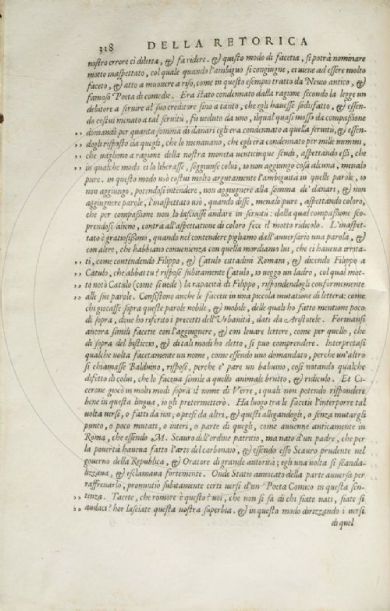 318 DELLA RETORICA
nostro errore ci diletta, & fa ridere. & questo modo di facetia, si potrà nominare
motto inaspettato, col quale quando l'ambiguo si congiugne, et viene ad essere molto
faceto, & atto a muovere a riso, come in questo esempio tratto da Nevio antico, &
famoso Poeta di comedie. Era stato condennato dalla ragione secondo la legge un
debitore a servire al suo creditore sino a tanto, che egli havesse sodisfatto, & essen-
do costui menato a tal servitù, fù veduto da uno, il qual quasi mosso da compassione
domandò per quanta somma di danari egli era condennato a quella servitù, & essen-
dogli risposto da quegli, che lo menavano, che egli era condennato per mille nummi,
che vagliono a ragione della nostra moneta venticinque scudi, aspettando essi, che
in qualche modo ei lo liberasse, soggiunse costui, io non aggiungo cosa alcuna, menalo
pure. in questo modo usò costui molto argutamente l'ambiguità in quelle parole, io
non aggiungo, potendosi intendere, non aggiugnere alla somma de' danari, & non
aggiugnere parole, l'inaspettato usò, quando disse, menalo pure, aspettando coloro,
che per compassione non lo lasciasse andare in servitù: dalla qual compassione sco-
prendosi alieno, contra all'aspettatione di coloro fece il motto ridicolo. L'inaspet-
tato è gratissimo, quando nel contendere pigliamo dall'avversario una parola, &
con altre, che habbiano convenienza con quella mordiamo lui, che ci haveva irrita-
ti, come contendendo Filippo, & Catulo cittadini Romani, & dicendo Filippo a
Catulo, che abbai tu? rispose subitamente Catulo, io veggo un ladro, col qual mot-
to notò Catulo (come si vede) la rapacità di Filippo, rispondendogli conformemente
alle sue parole. Consistono anche le facetie in una piccola mutatione di lettera: come
chi giocasse sopra queste parole nobile, & mobile, delle quali ho fatto mentione poco
di sopra, dove ho referito i precetti dell'Urbanità, dati da Aristotele. Formansi
ancora simili facetie con l'aggiugnere, & con levare lettere, come per quello, che
di sopra del bisticcio, & di tali modi ho detto, si può comprendere. Interpretasi
qualche volta facetamente un nome, come essendo uno domandato, perche un'altro
si chiamasse Balduino, rispose, perche e' pare un babuino, così notando qualche
difetto di colui, che lo faceva simile a quello animale brutto, & ridicolo. Et Ci-
cerone giocò in molti modi sopra il nome di Verre, i quali non potendo rispondere
bene in questa lingua, io gli pretermettero. Ha luogo tra le facetie l'interporre tal
volta versi, o fatti da noi, o presi da altri, & questi allegandogli, o senza mutargli
punto, o poco mutati, o interi, o parte di quegli, come avvenne anticamente in
Roma, che essendo M. Scauro dell'ordine patritio, ma nato d'un padre, che per
la povertà haveva fatto l'arte del carbonaio, & essendo esso Scauro prudente nel
governo della Republica, & Oratore di grande autorità; egli una volta si scanda-
lizzava, & esclamava fortemente. Onde Statio avvocato della parte avversa per
raffrenarlo, pronuntiò subitamente certi versi d'un Poeta Comico in questa sen-
tenza. Tacete, che romore è questo? voi, che non si sa di chi siate nati, siate sì
audaci? hor lasciate questa vostra superbia. & in questo modo dirizzando i versi
di quel